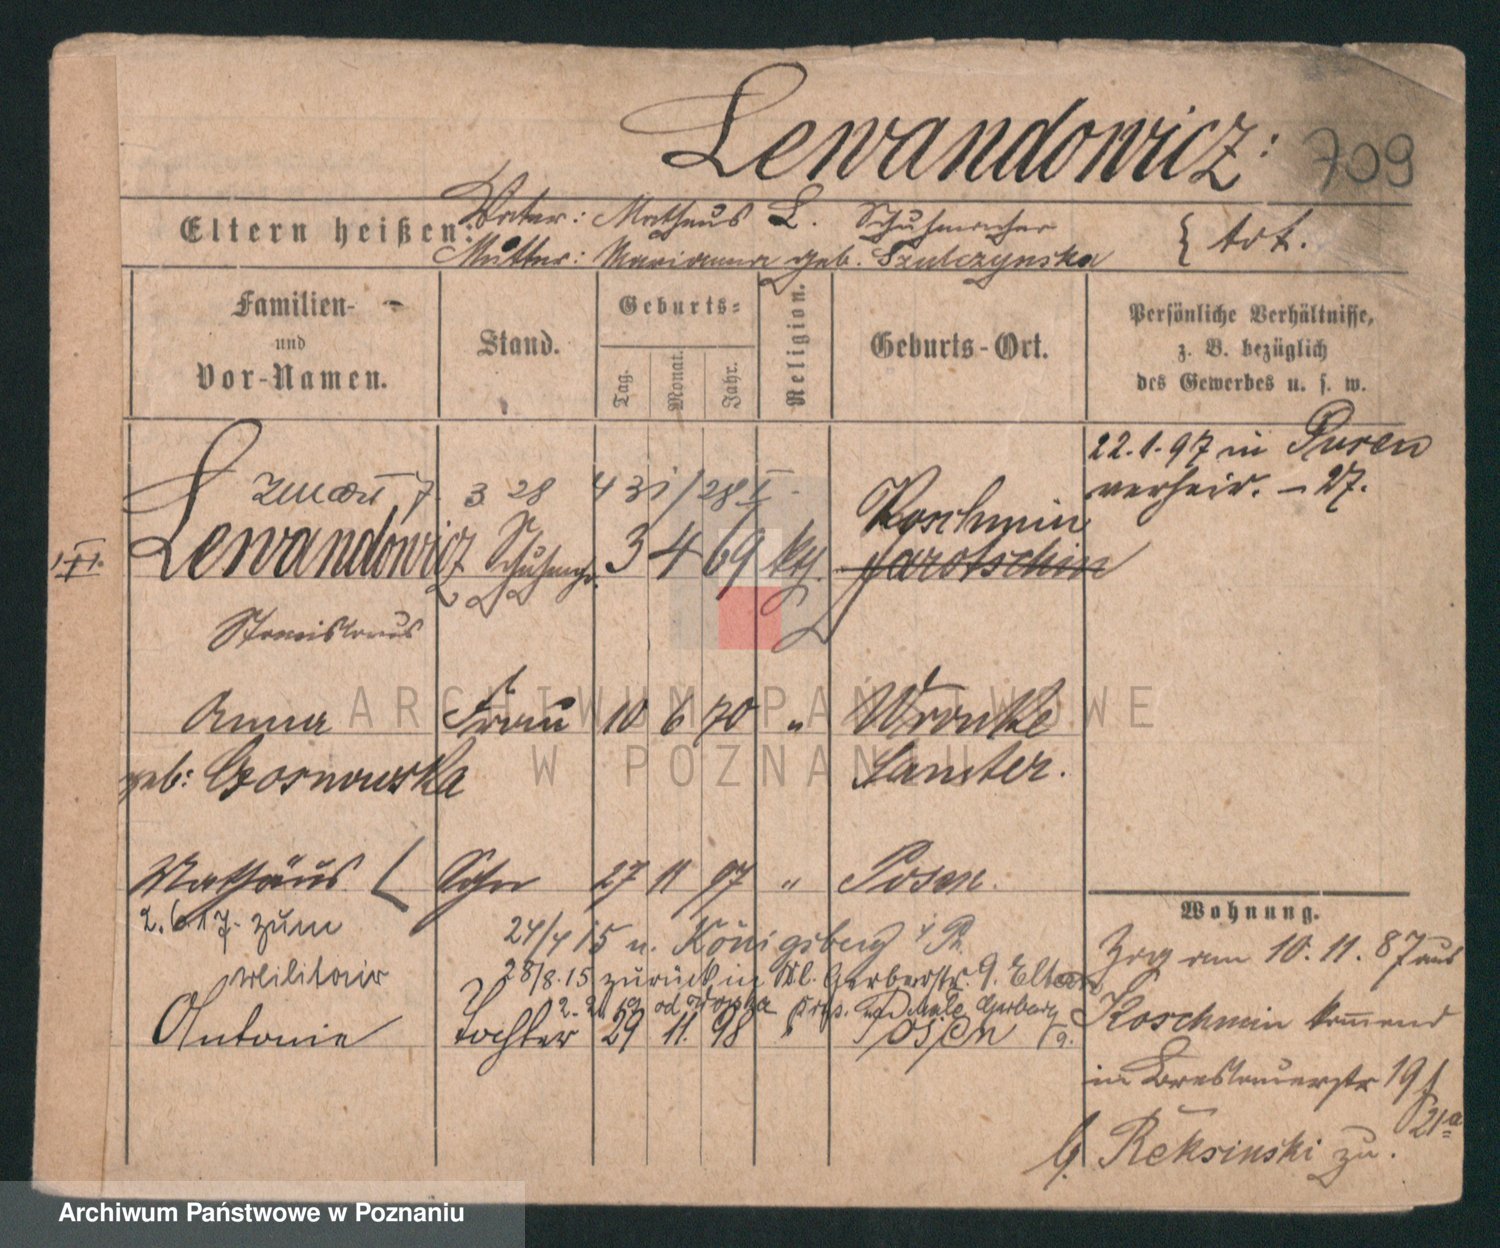 Lewandowicz: 709
Eltern heißen: Vater: Matheus L. Schuhmacher
Mutter: Marianna geb. Szulczynska } tot.
Familien- und Vor-Namen.
Stand.
Geburts=
Tag. Monat. Jahr.
Religion.
Geburts-Ort.
Persönliche Verhältnisse,
z. B. bezüglich
des Gewerbes u. s. w.
22.1.97 in Puren
verheir. – 27.
zmarł 7. 3 28
Koschmin
I.
Lewandowicz Schuhmchr. 3 4 69 kth. Jarotschin
Stanislaus
Anna Frau 10 6 70 " Wronke
geb: Gosnowska Samter.
Mathäus Sohn 27 11 97 " Posen.
2.6.17. zum 24/4 15 n. Königsberg i/Pr.
Militair 28/8.15 zurück in Kl. Gerberstr. 9. Eltern
Antonie Tochter 29 11. 98 " Posen
Wohnung.
Zog am 10.11.87 aus
Koschmin kommend
in Breslauerstr 19/
21a
b. Reksinski zu.
ARCHIWUM PAŃSTWOWE
W POZNANIU
Archiwum Państwowe w Poznaniu